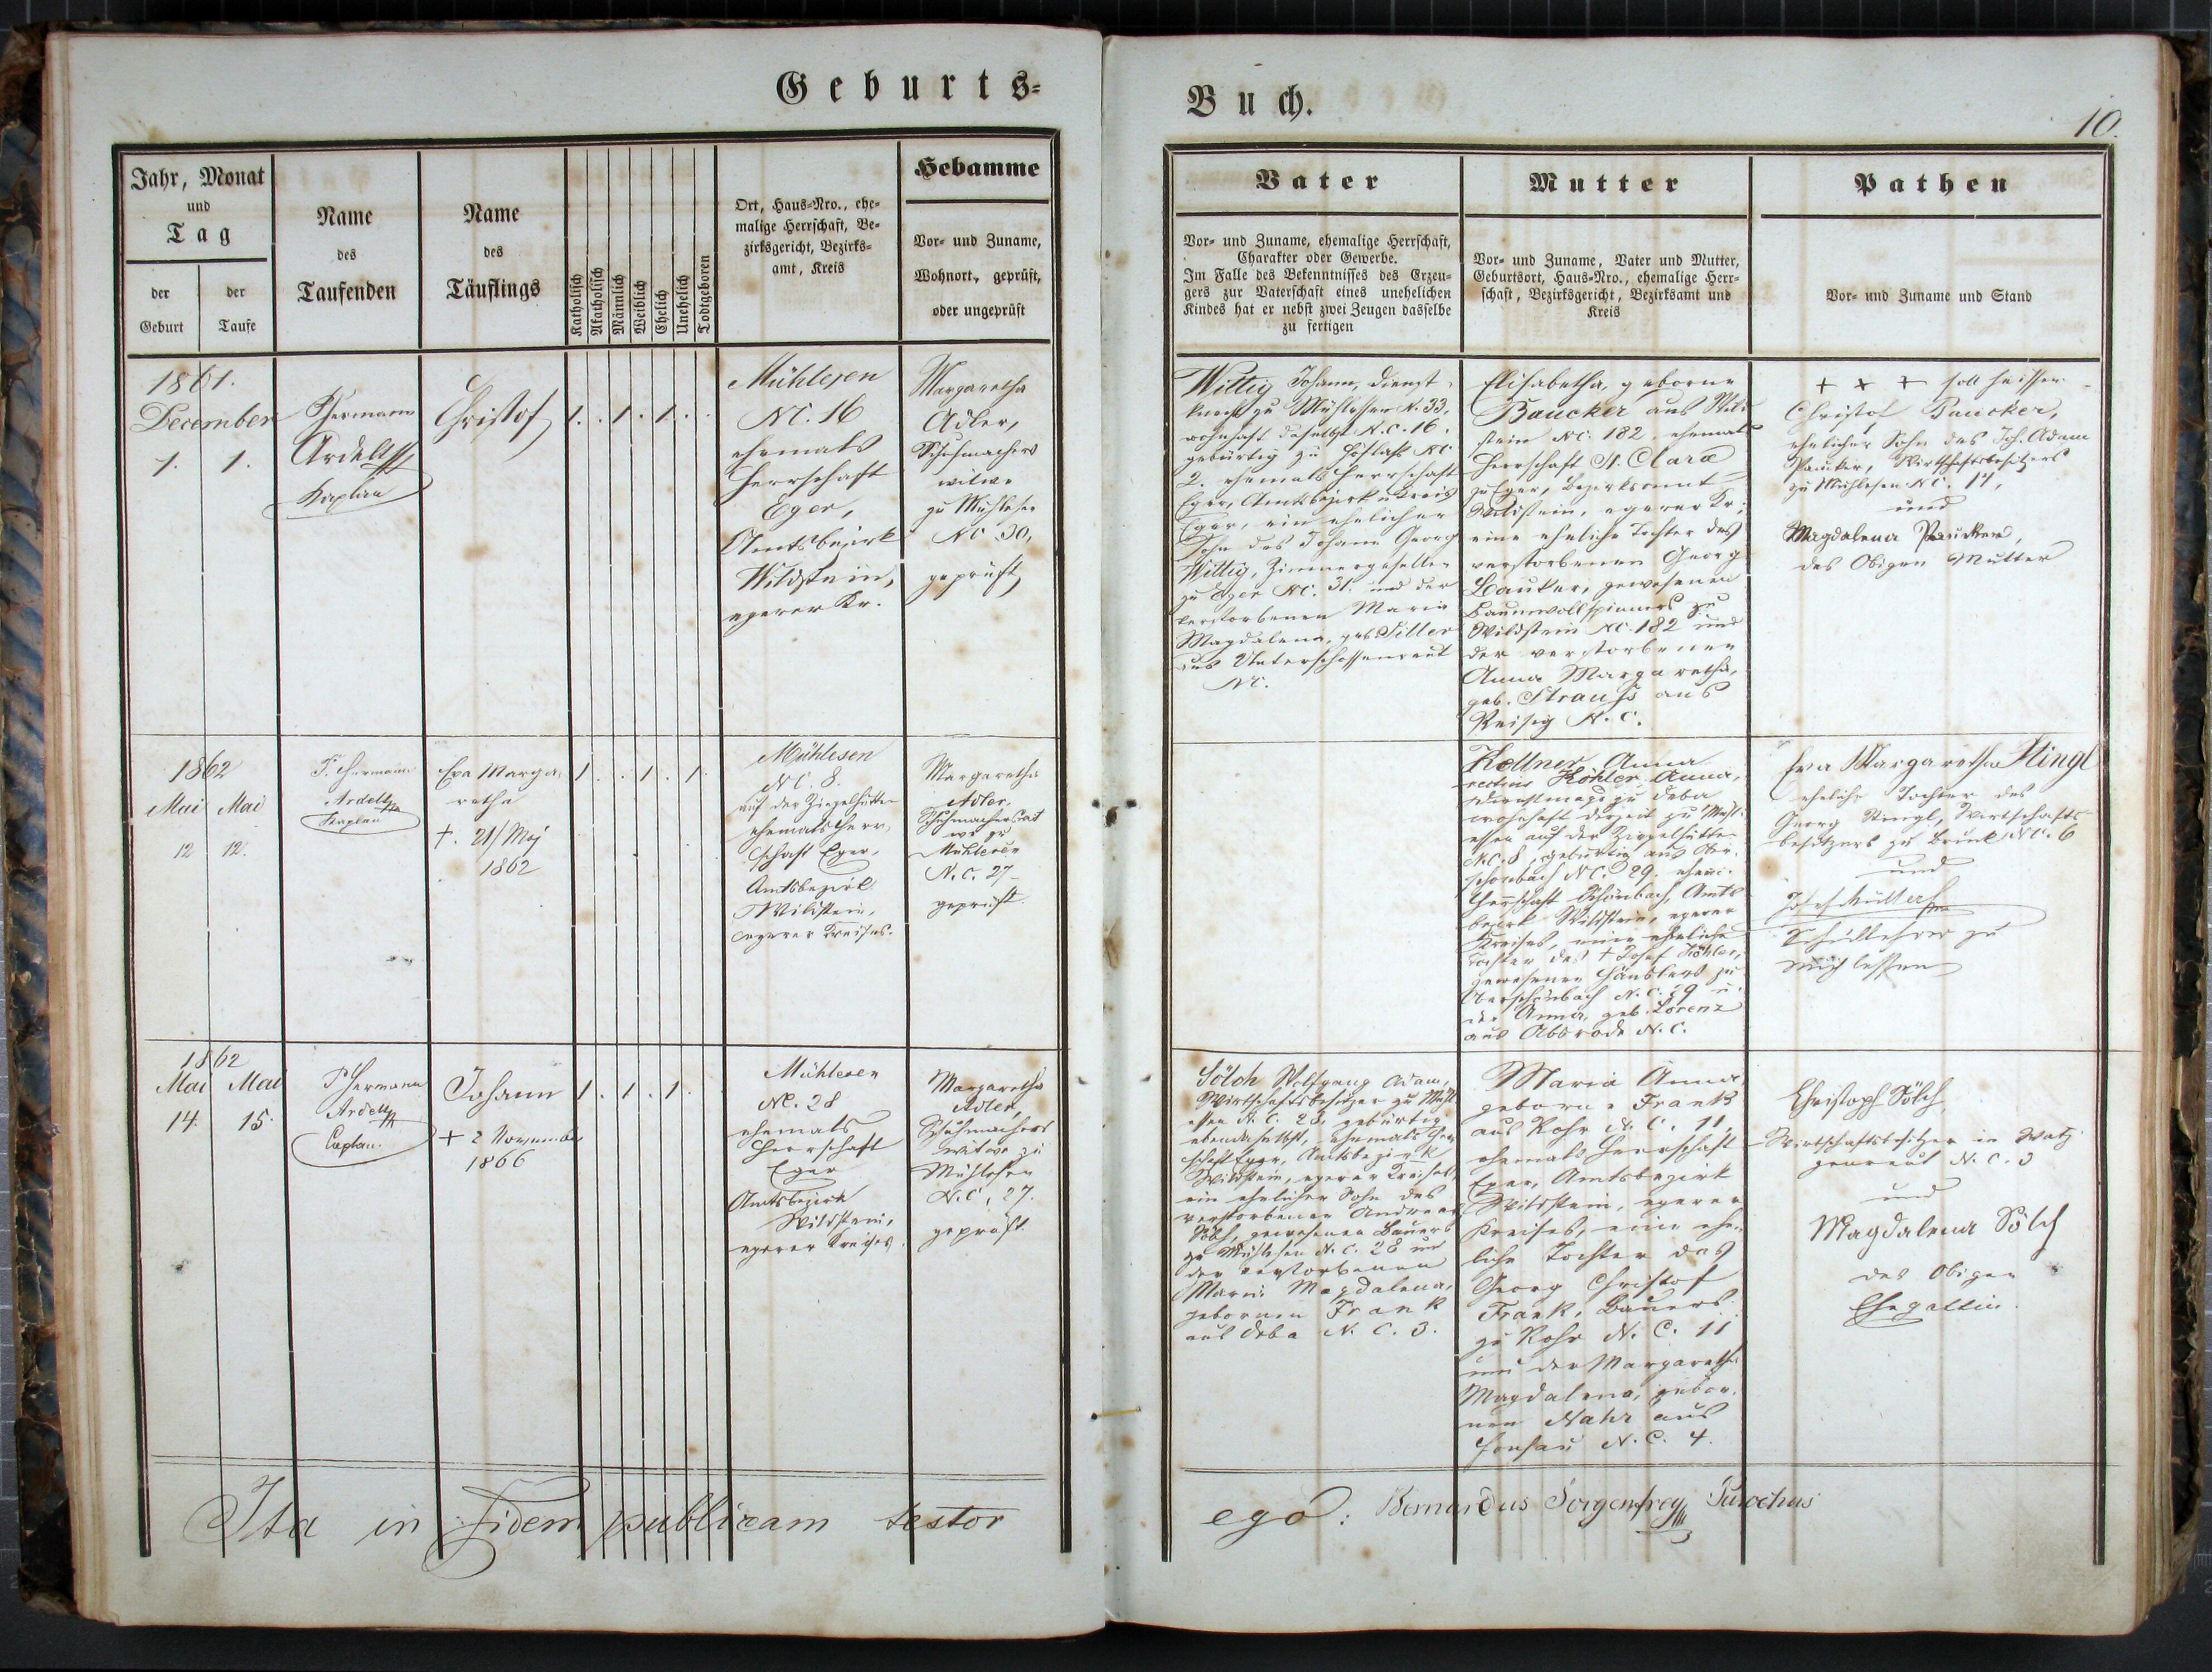 Geburts-
Buch.
10.
Jahr, Monat
und
Tag
der
Geburt
der
Taufe
Name
des
Taufenden
Name
des
Täuflings
Katholisch
Akatholisch
Männlich
Weiblich
Ehelich
Unehelich
Todtgeboren
Ort, Haus-Nro., ehe-
malige Herrschaft, Be-
zirksgericht, Bezirks-
amt, Kreis
Hebamme
Vor- und Zuname,
Wohnort, geprüft,
oder ungeprüft
Vater
Vor- und Zuname, ehemalige Herrschaft,
Charakter oder Gewerbe.
Im Falle des Bekenntnisses des Erzeu-
gers zur Vaterschaft eines unehelichen
Kindes hat er nebst zwei Zeugen dasselbe
zu fertigen
Mutter
Vor- und Zuname, Vater und Mutter,
Geburtsort, Haus-Nro., ehemalige Herr-
schaft, Bezirksgericht, Bezirksamt und
Kreis
Pathen
Vor- und Zuname und Stand
1861.
December
1. 1.
Hermann
Ardelt
Kaplan
Christof
1. . 1. . 1. . .
Mühlesen
NC. 16
ehemals
Herrschaft
Eger,
Amtsbezirk
Wildstein,
egerer Kr.
Margaretha
Adler,
Schuhmachers
witwe
zu Mühlesen
NC 30,
geprüft
Wittig Johann, Dienst-
knecht zu Mühlessen N. 33,
wohnhaft daselbst N.C. 16.
gebürtig zu Höflas NC.
2. ehemals Herrschaft
Eger, Amtsbezirk u Kreis
Eger, ein ehelicher
Sohn des Johann Georg
Wittig, Zimmergesellen
zu Eger NC. 31. und der
verstorbenen Maria
Magdalena, geb.
aus Unterschossenreut
NC.
Elisabetha, geborne
Baucker aus Wild-
stein NC. 182, ehemals
Herrschaft St. Clara
zu Eger, Bezirksamt
Wildstein, egerer Kr;
eine eheliche Tochter des
verstorbenen Georg
Bauker, gewesenen
Baumwollspinners zu
Wildstein NC. 182 und
der verstorbenen
Anna Margaretha,
geb. Strauss aus
Reisig N.C.
+ + + soll heissen
Christof Paucker,
ehelicher Sohn des Joh. Adam
Pauker, Wirtschaftsbesitzers
zu Mühlesen NC. 17,
und
Magdalena Pauker,
des Obigen Mutter
1862
Mai Mai
12 12.
P. Hermann
Ardelt
Kaplan
Eva Marga-
retha
+. 21/Maj
1862
1. . . 1. . 1.
Mühlesen
NC. 8.
auf der Ziegelhütte
ehemals Herr-
schaft Eger,
Amtsbezirk
Wildstein,
egerer Kreises.
Margaretha
Adler,
Schuhmacherswit
we zu
Mühlesen
N.C. 27
geprüft
Kollner Anna
rectius Köhler Anna,
Dienstmagd zu Deba
wohnhaft derzeit zu Mühl-
essen auf der Ziegelhütte
NC. 8, gebürtig aus Ober-
schönbach NC. 29. ehem.
Herrschaft Schönbach, Amts-
bezirk Wildstein, egerer
Kreises, eine eheliche
Tochter des + Josef Köhler,
gewesenen Häuslers zu
Oberschönbach N.C. 29 u.
der Anna, geb. Lorenz
aus Absrode N.C.
Eva Margaretha Stingl
eheliche Tochter des
Georg Stingl, Wirtschafts-
besitzers zu Bruck NC. 6
und
Josef Müller
Schullehrer zu
Mühlessen
1862
Mai Mai
14. 15.
P Hermann
Ardelt
Caplan.
Johann
+ 2 November
1866
1. . 1. . 1.
Mühlesen
NC. 28
ehemals
Herrschaft
Eger
Amtsbezirk
Wildstein,
egerer Kreises
Margaretha
Adler,
Schuhmachers
witwe zu
Mühlesen
N.C. 27.
geprüft
Sölch Wolfgang Adam,
Wirtschaftsbesitzer zu Mühl-
essen N.C. 28, gebürtig
ebendaselbst, ehemals Herr-
schaft Eger, Amtsbezirk
Wildstein, egerer Kreises,
ein ehelicher Sohn des
verstorbenen Andreas
Sölch, gewesenen Bauers
zu Mühlesen N.C. 28 und
der verstorbenen
Maria Magdalena,
gebornen Frank
aus Deba N.C. 3.
Maria Anna,
geborne Frank
aus Rohr N.C. 11,
ehemals Herrschaft
Eger, Amtsbezirk
Wildstein, egerer
Kreises, eine ehe-
liche Tochter des
Georg Christof
Frank, Bauers
zu Rohr N.C. 11
und der Margaretha
Magdalena, gebor-
nen Nahr aus
N.C. 4.
Christoph Sölch
Wirtschaftsbesitzer in Watz-
genreut N.C. 3
und
Magdalena Sölch
des Obigen
Ehegattin.
Ita in Fidem publicam testor
ego: Bernardus Sorgenfrey Parochus